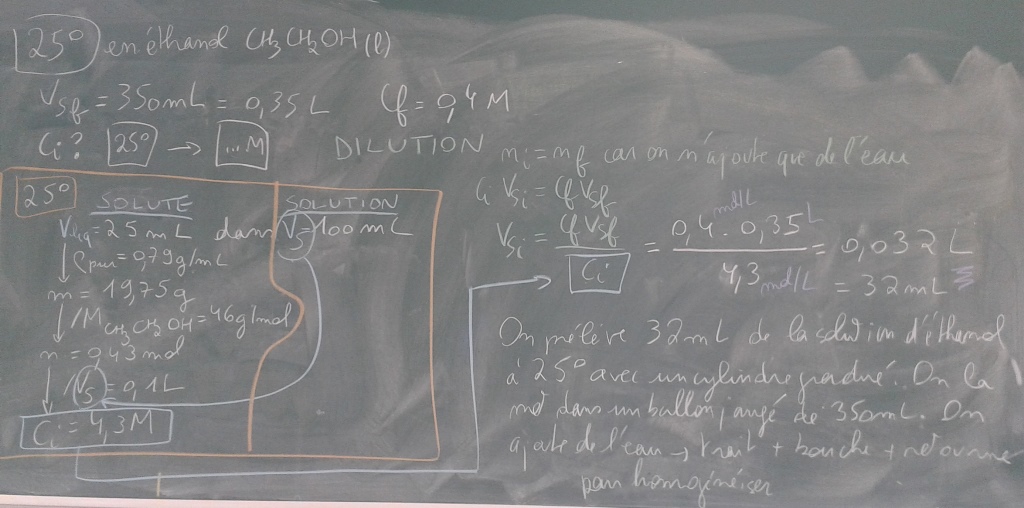 25° en éthanol CH3CH2OH(l)
Vsf = 350mL = 0,35L Cf = 0,4M
Ci? 25° → ...M DILUTION
25° SOLUTE SOLUTION
Vliq = 25mL dans Vs = 100mL
ρpur = 0,79g/mL
m = 19,75g
/M CH3CH2OH = 46g/mol
n = 0,43mol
/Vs = 0,1L
Ci = 4,3M
ni = nf car on n'ajoute que de l'eau
Ci Vsi = Cf Vsf
Vsi = Cf Vsf / Ci = 0,4 mol/L . 0,35 L / 4,3 mol/L = 0,032 L
= 32mL
On prélève 32mL de la solution d'éthanol
à 25° avec un cylindre gradué. On la
met dans un ballon jaugé de 350mL. On
ajoute de l'eau → trait + bouche + retourne
pour homogénéiser